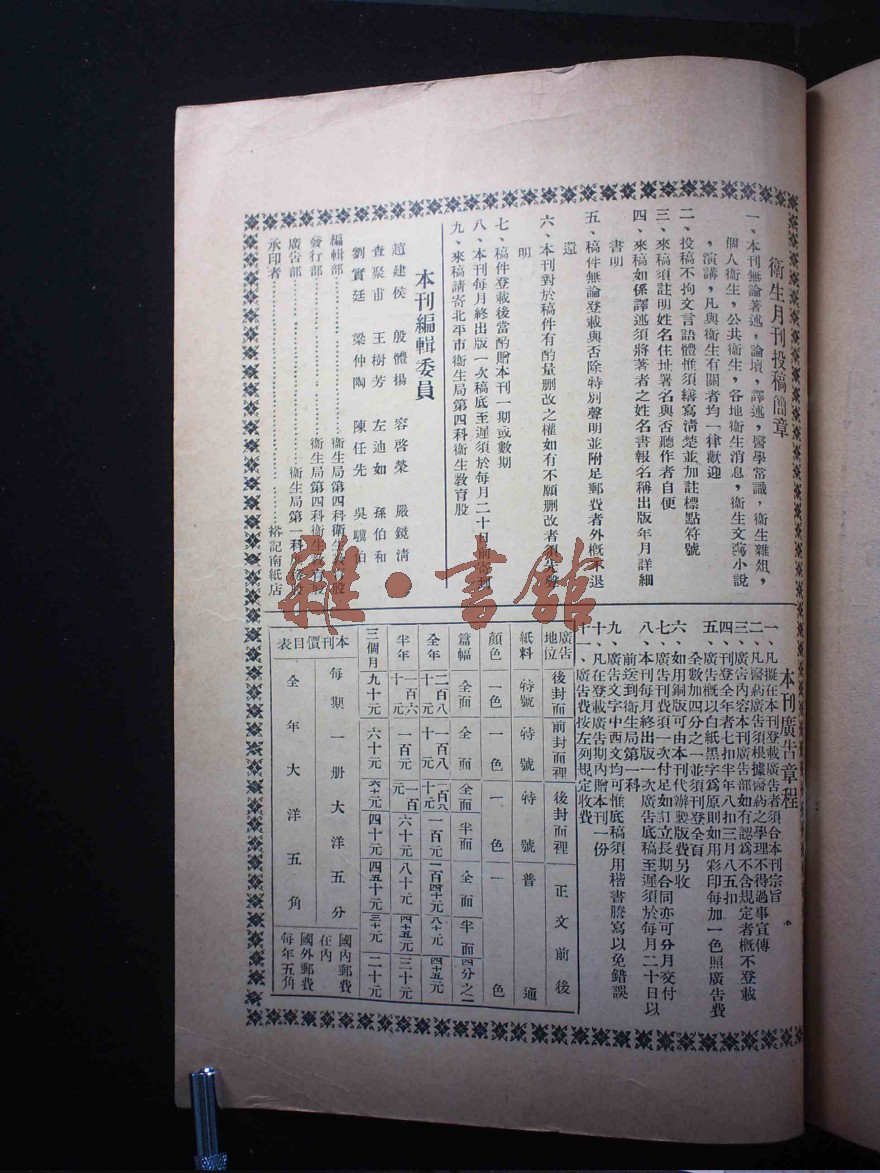 衛生月刊投稿簡章
一、本刊無論著述，論壇，譯述，醫學常識，衛生雜俎，
個人衛生，公共衛生，各地衛生消息，衛生文藝小說
，演講，凡與衛生有關者均一律歡迎
二、投稿不拘文言語體惟須繕寫清楚並加註標點符號
三、來稿須註明姓名住址署名與否聽作者自便
四、來稿如係譯述須將著者之姓名書報名稱出版年月詳細
書明
五、稿件無論登載與否除特別聲明並附足郵費者外概不退
還
六、本刊對於稿件有酌量刪改之權如有不願刪改者須先聲
明
七、稿件登載後當酌贈本刊一期或數期
八、本刊每月終出版一次稿底至遲須於每月二十日前寄到
九、來稿請寄北平市衛生局第四科衛生教育股
本刊編輯委員
趙建侯 殷體揚 容啓榮 嚴鏡清
查聚甫 王樹芳 左迪如 孫伯和
劉實廷 梁仲陶 陳任先 吳驥伯
編輯部 衛生局第四科衛生教育股
發行部 衛生局第四科衛生教育股
廣告部 衛生局第一科
承印者 裕記南紙店
本刊廣告章程
一、凡擬在本刊登載廣告者須合本刊宗旨
二、凡醫藥廣告須根據醫藥之學理不得過事宣傳
三、廣告內容本刊廣告部如有認為不合規定者概不登載
四、刊登全年者七扣半年八扣三月八五扣
五、廣告概以白紙黑字為原則如用彩印每加一色照廣告費
全數加四分之一並須刊登全頁
六、如用銅版可由本刊代辦製版費另收
七、廣告刊費須一次付足如訂立長期合同亦可分月交付
八、本刊每月終出版一次廣告底稿至遲須於每月二十日以
前送到衛生局第一科
九、廣告文字中西文均可惟底稿須用楷書謄寫以免錯誤
十、凡在登載廣告期內贈本刊一份
十一、廣告費按左列規定收費
廣告地位 後封面 前封面裡 後封面裡 正文前後
紙料 特號 特號 特號 普通
顏色 一色 一色 一色 一色
篇幅 全面 全面 全面 半面 全面 半面 四分之一
全年 二百八十元 一百八十元 一百八十元 一百元 一百四十元 八十元 四十五元
半年 一百六十元 一百元 一百元 六十元 八十元 四十五元 三十元
三個月 九十元 六十元 六十元 四十元 四五十元 三十元 二十元
本刊價目表
每期一册大洋五分
全年大洋五角
國內郵費
在內
國外郵費
每年五角
雅·書館